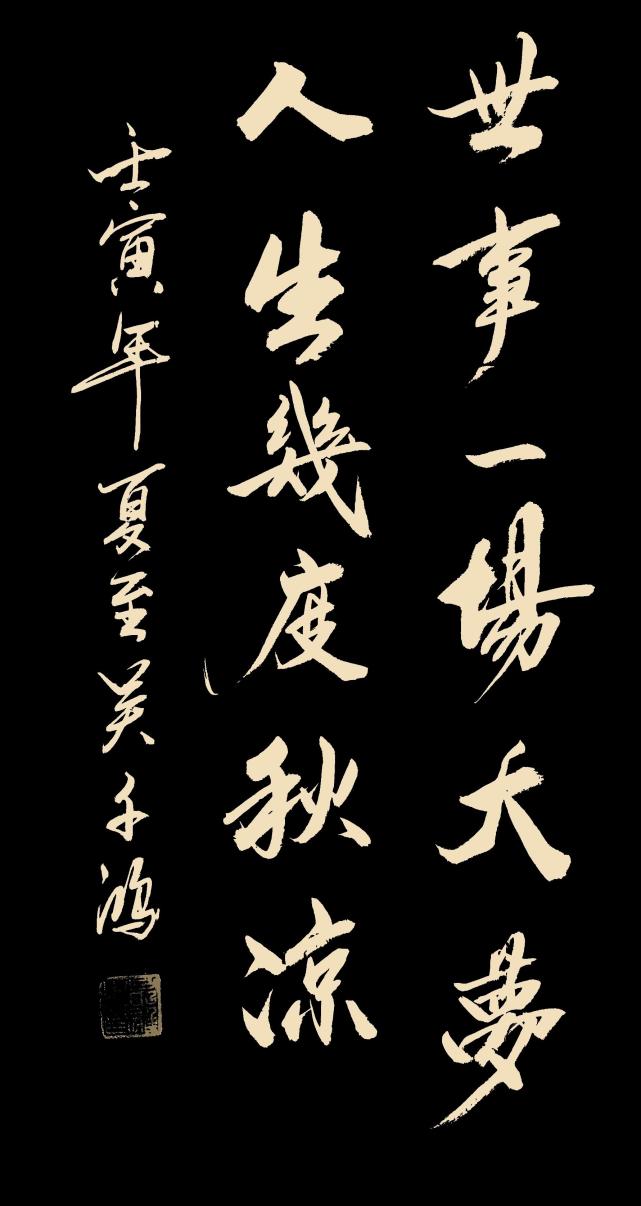 世事一場大夢
人生幾度秋凉
壬寅年夏至吴千鴻